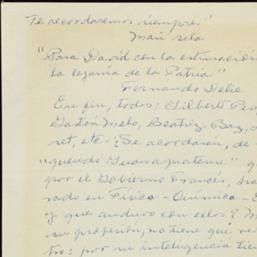 Te recordaremos siempre!
Mari sela
"Para David con la estimación
la lejanía de la Patria"
Fernando Delie
En fin, todos: Gilberto Pen
Gastón Melo, Beatriz Baz, a
ret, etc. ¿Se acordarán, de
"querido Guanajuatense" q
por el Gobierno Francés, 
rado en Física-Química-
y que anduvo con ellos? 
su profesión, no tiene qué
tro: por su inteligencia tien